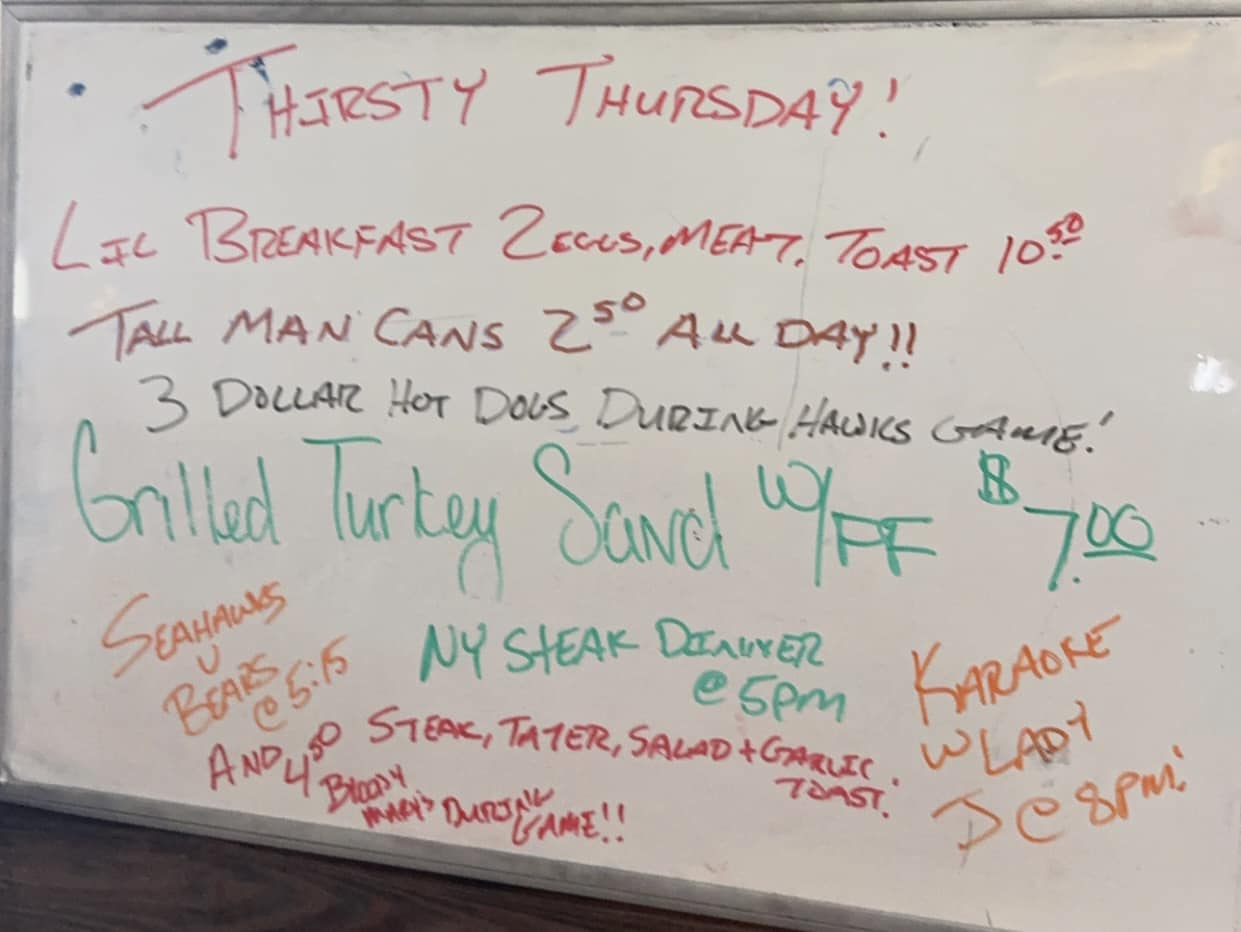 THIRSTY THURSDAY!
LIL BREAKFAST 2 EGGS, MEAT, TOAST 10.50
TALL MAN CANS 2 50 ALL DAY!!
3 DOLLAR HOT DOGS DURING HAWKS GAME!
Grilled Turkey Sand W/FF $7.00
SEAHAWKS
V
BEARS
@ 5:15
NY STEAK DINNER
@ 5pm
STEAK, TATER, SALAD + GARLIC
TOAST.
AND 4 50
BLOODY
MARY'S DURING
GAME!!
KARAOKE
W LADY
J @ 8PM!